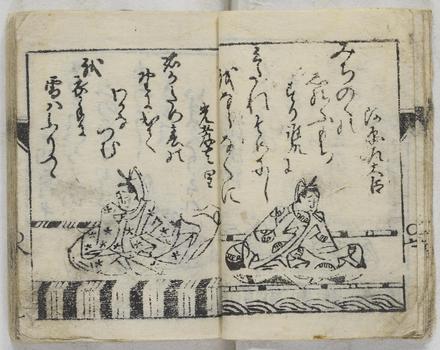 河原左大臣
みちのくの
しのふもち
すり誰ゆへに
みたれそめにし
我ならなくに
光孝天皇
君かため春の
野に出て
わかな
つむ
我衣手に
雪はふりつゝ